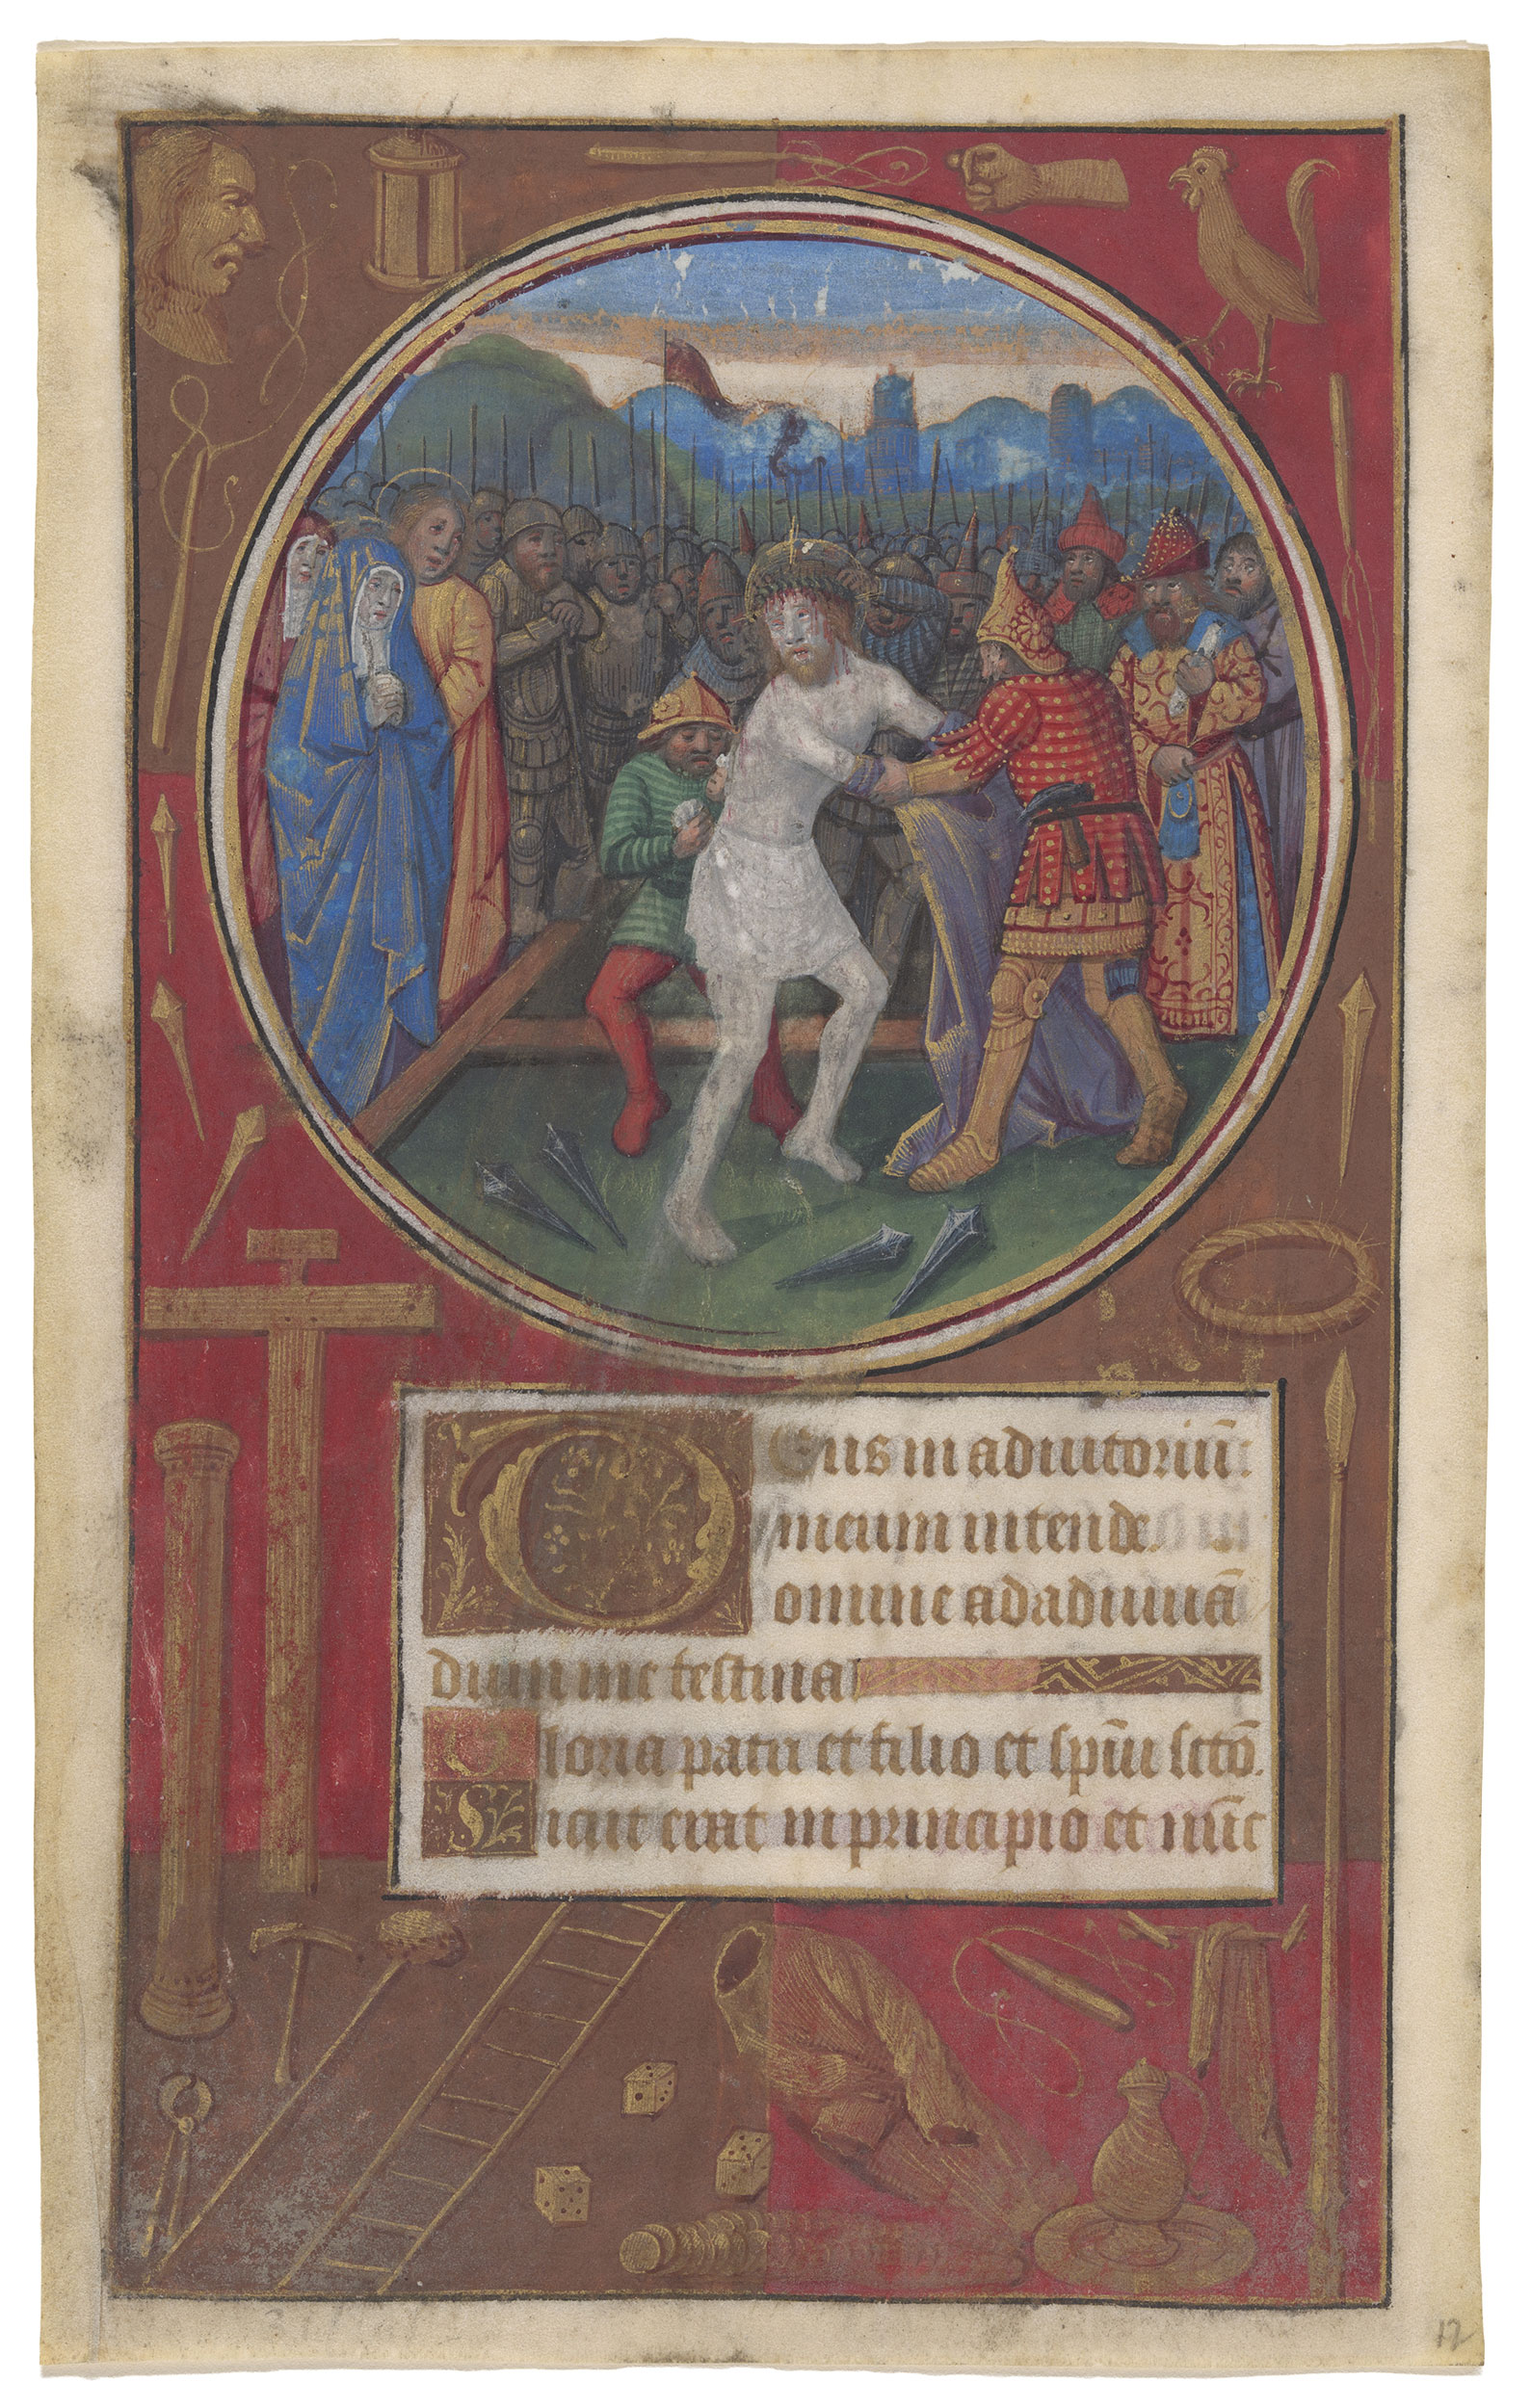 Deus in adiutoriū
meum intende. D
omine ad adiuuā
dum me festina
Gloria patri et filio et spũi sctō.
Sicut erat in principio et nūc
12